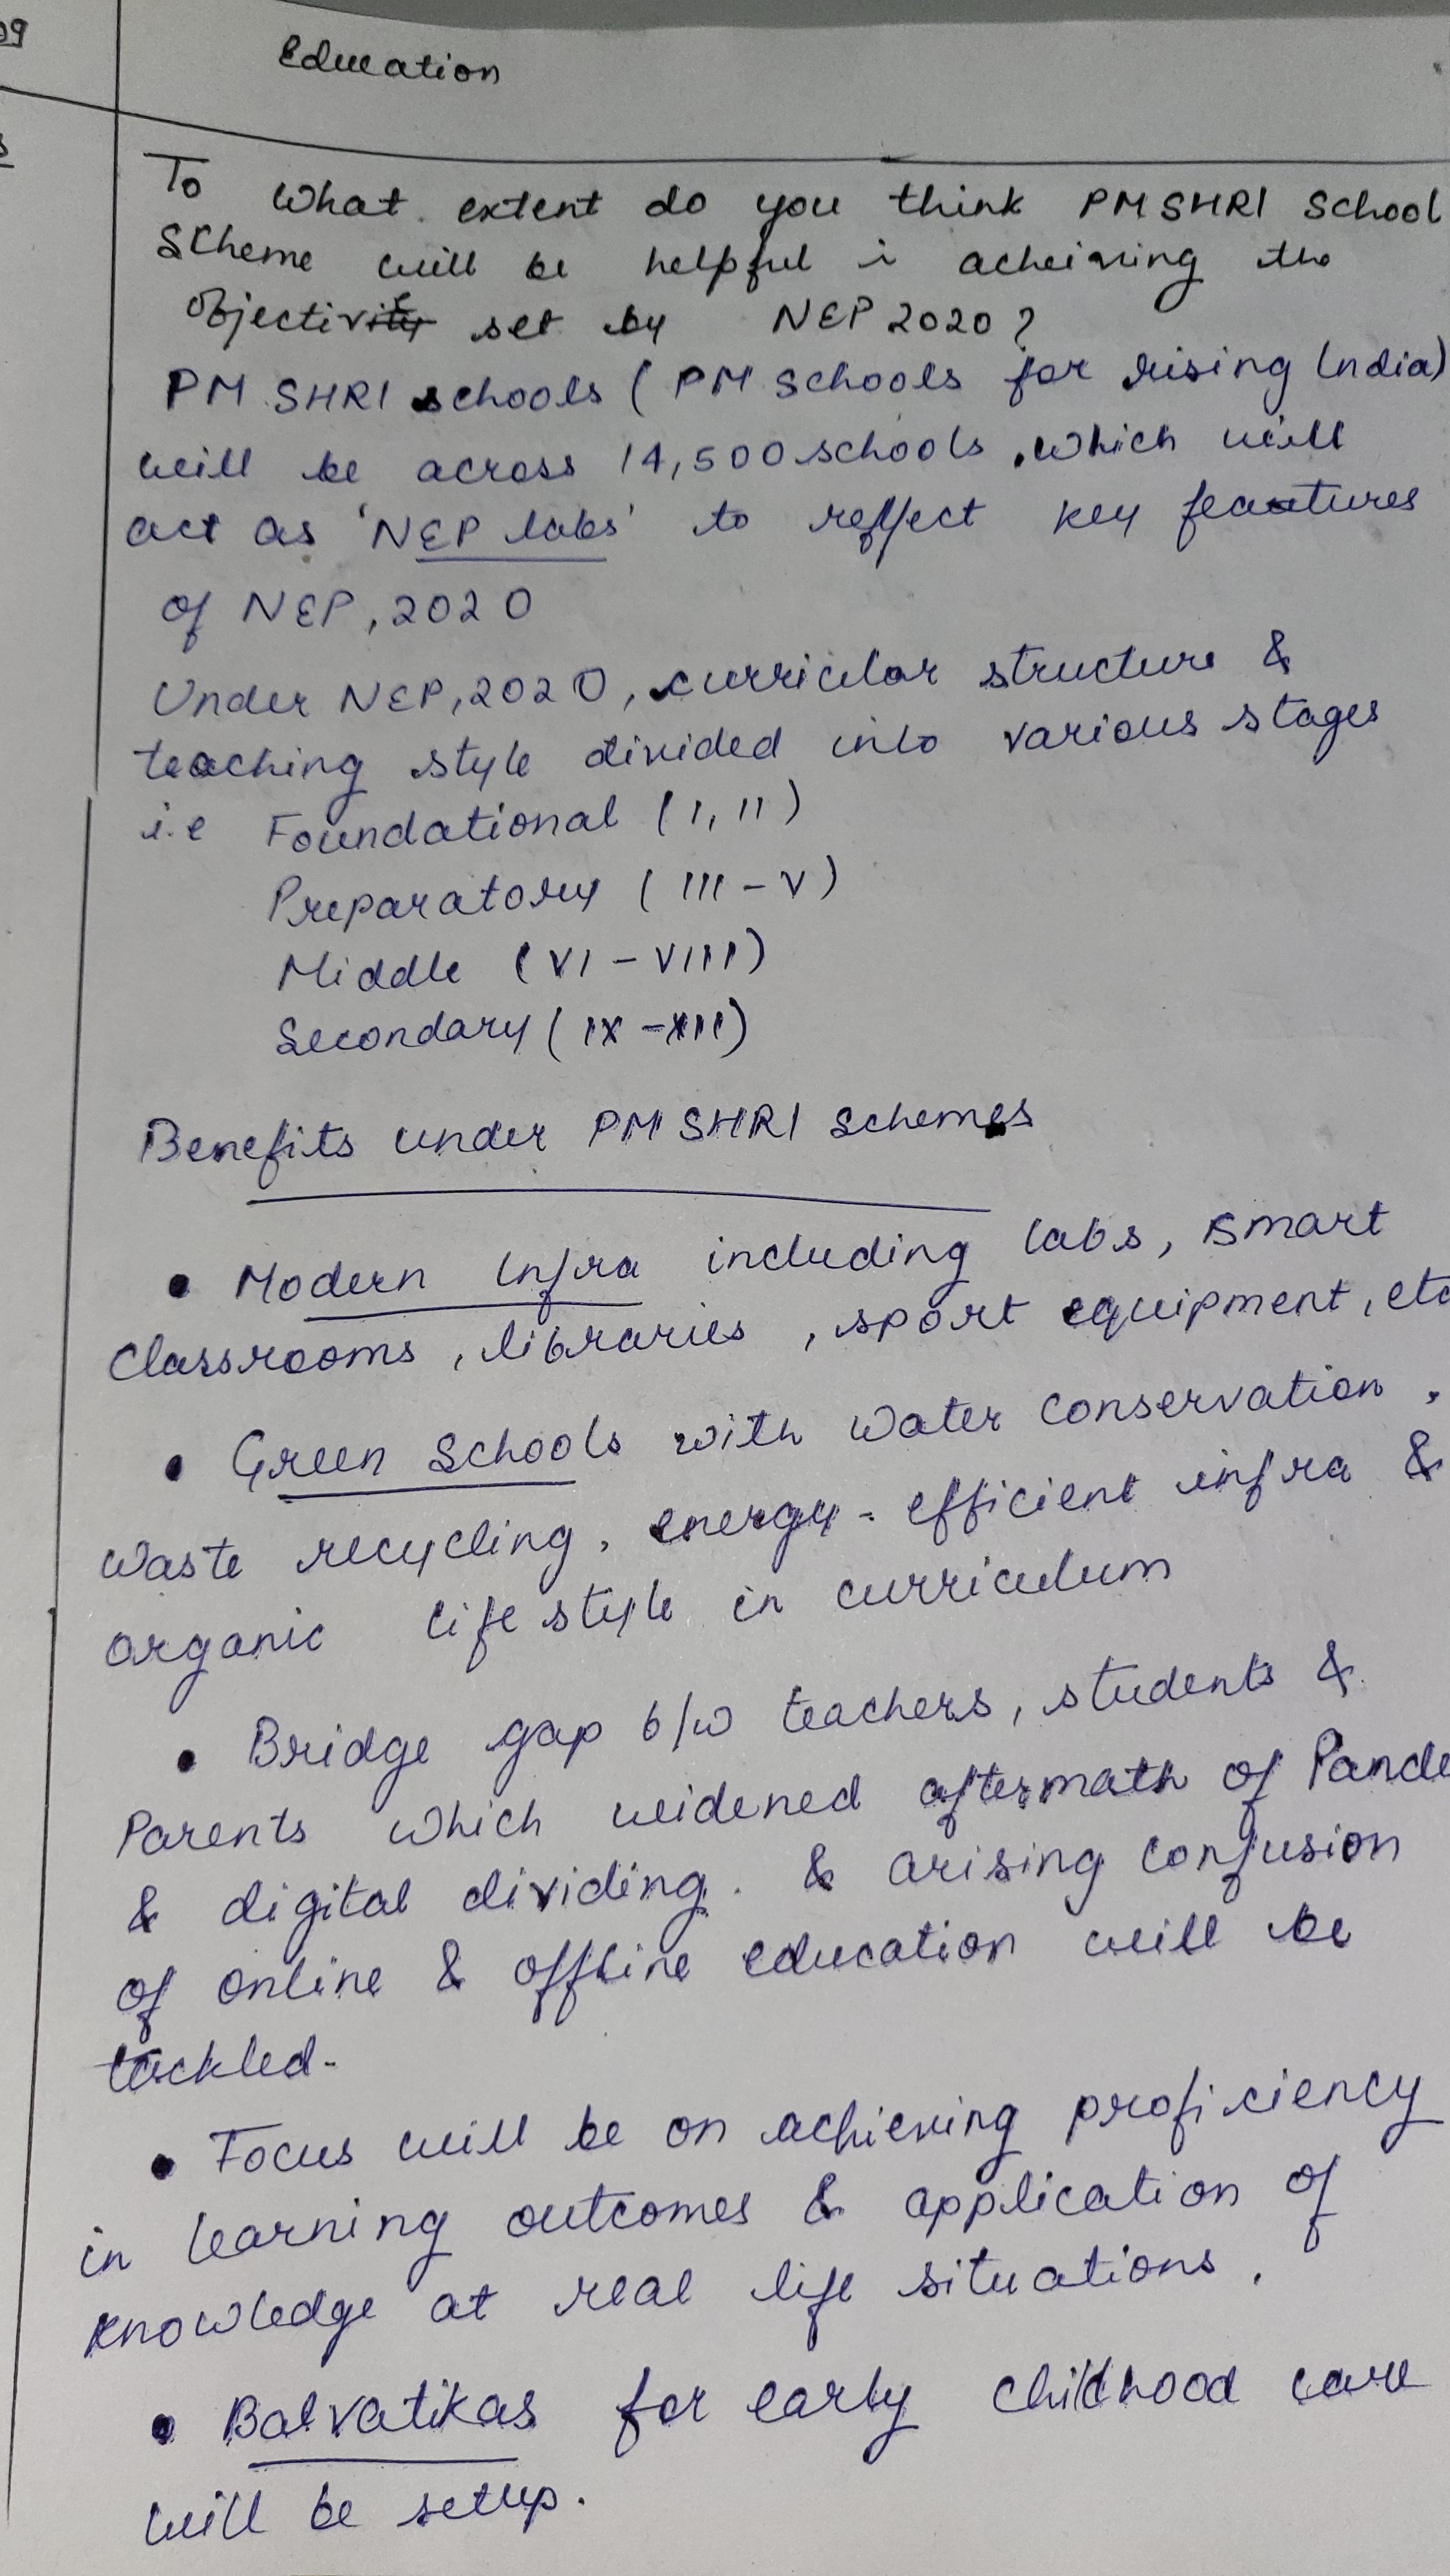 09
Education
To What extent do you think PM SHRI School
Scheme will be helpful i acheiving the
Objective set by NEP 2020?
PM SHRI schools (PM Schools for rising India)
will be across 14,500 schools, which will
act as 'NEP labs' to reflect key features
of NEP, 2020
Under NEP, 2020, curricular structure &
teaching style divided into various stages
i.e Foundational (I, II)
Preparatory (III - V)
Middle (VI - VIII)
Secondary (IX - XII)
Benefits under PM SHRI Schemes
• Modern Infra including labs, smart
Classrooms, libraries, sport equipment, etc
• Green Schools with water conservation,
waste recycling, energy-efficient infra &
organic lifestyle in curriculum
• Bridge gap b/w teachers, students &
Parents which widened aftermath of Pande
& digital dividing. & arising confusion
of online & offline education will be
tackled.
• Focus will be on achieving proficiency
in learning outcomes & application of
knowledge at real life situations.
• Balvatikas for early childhood care
will be setup.